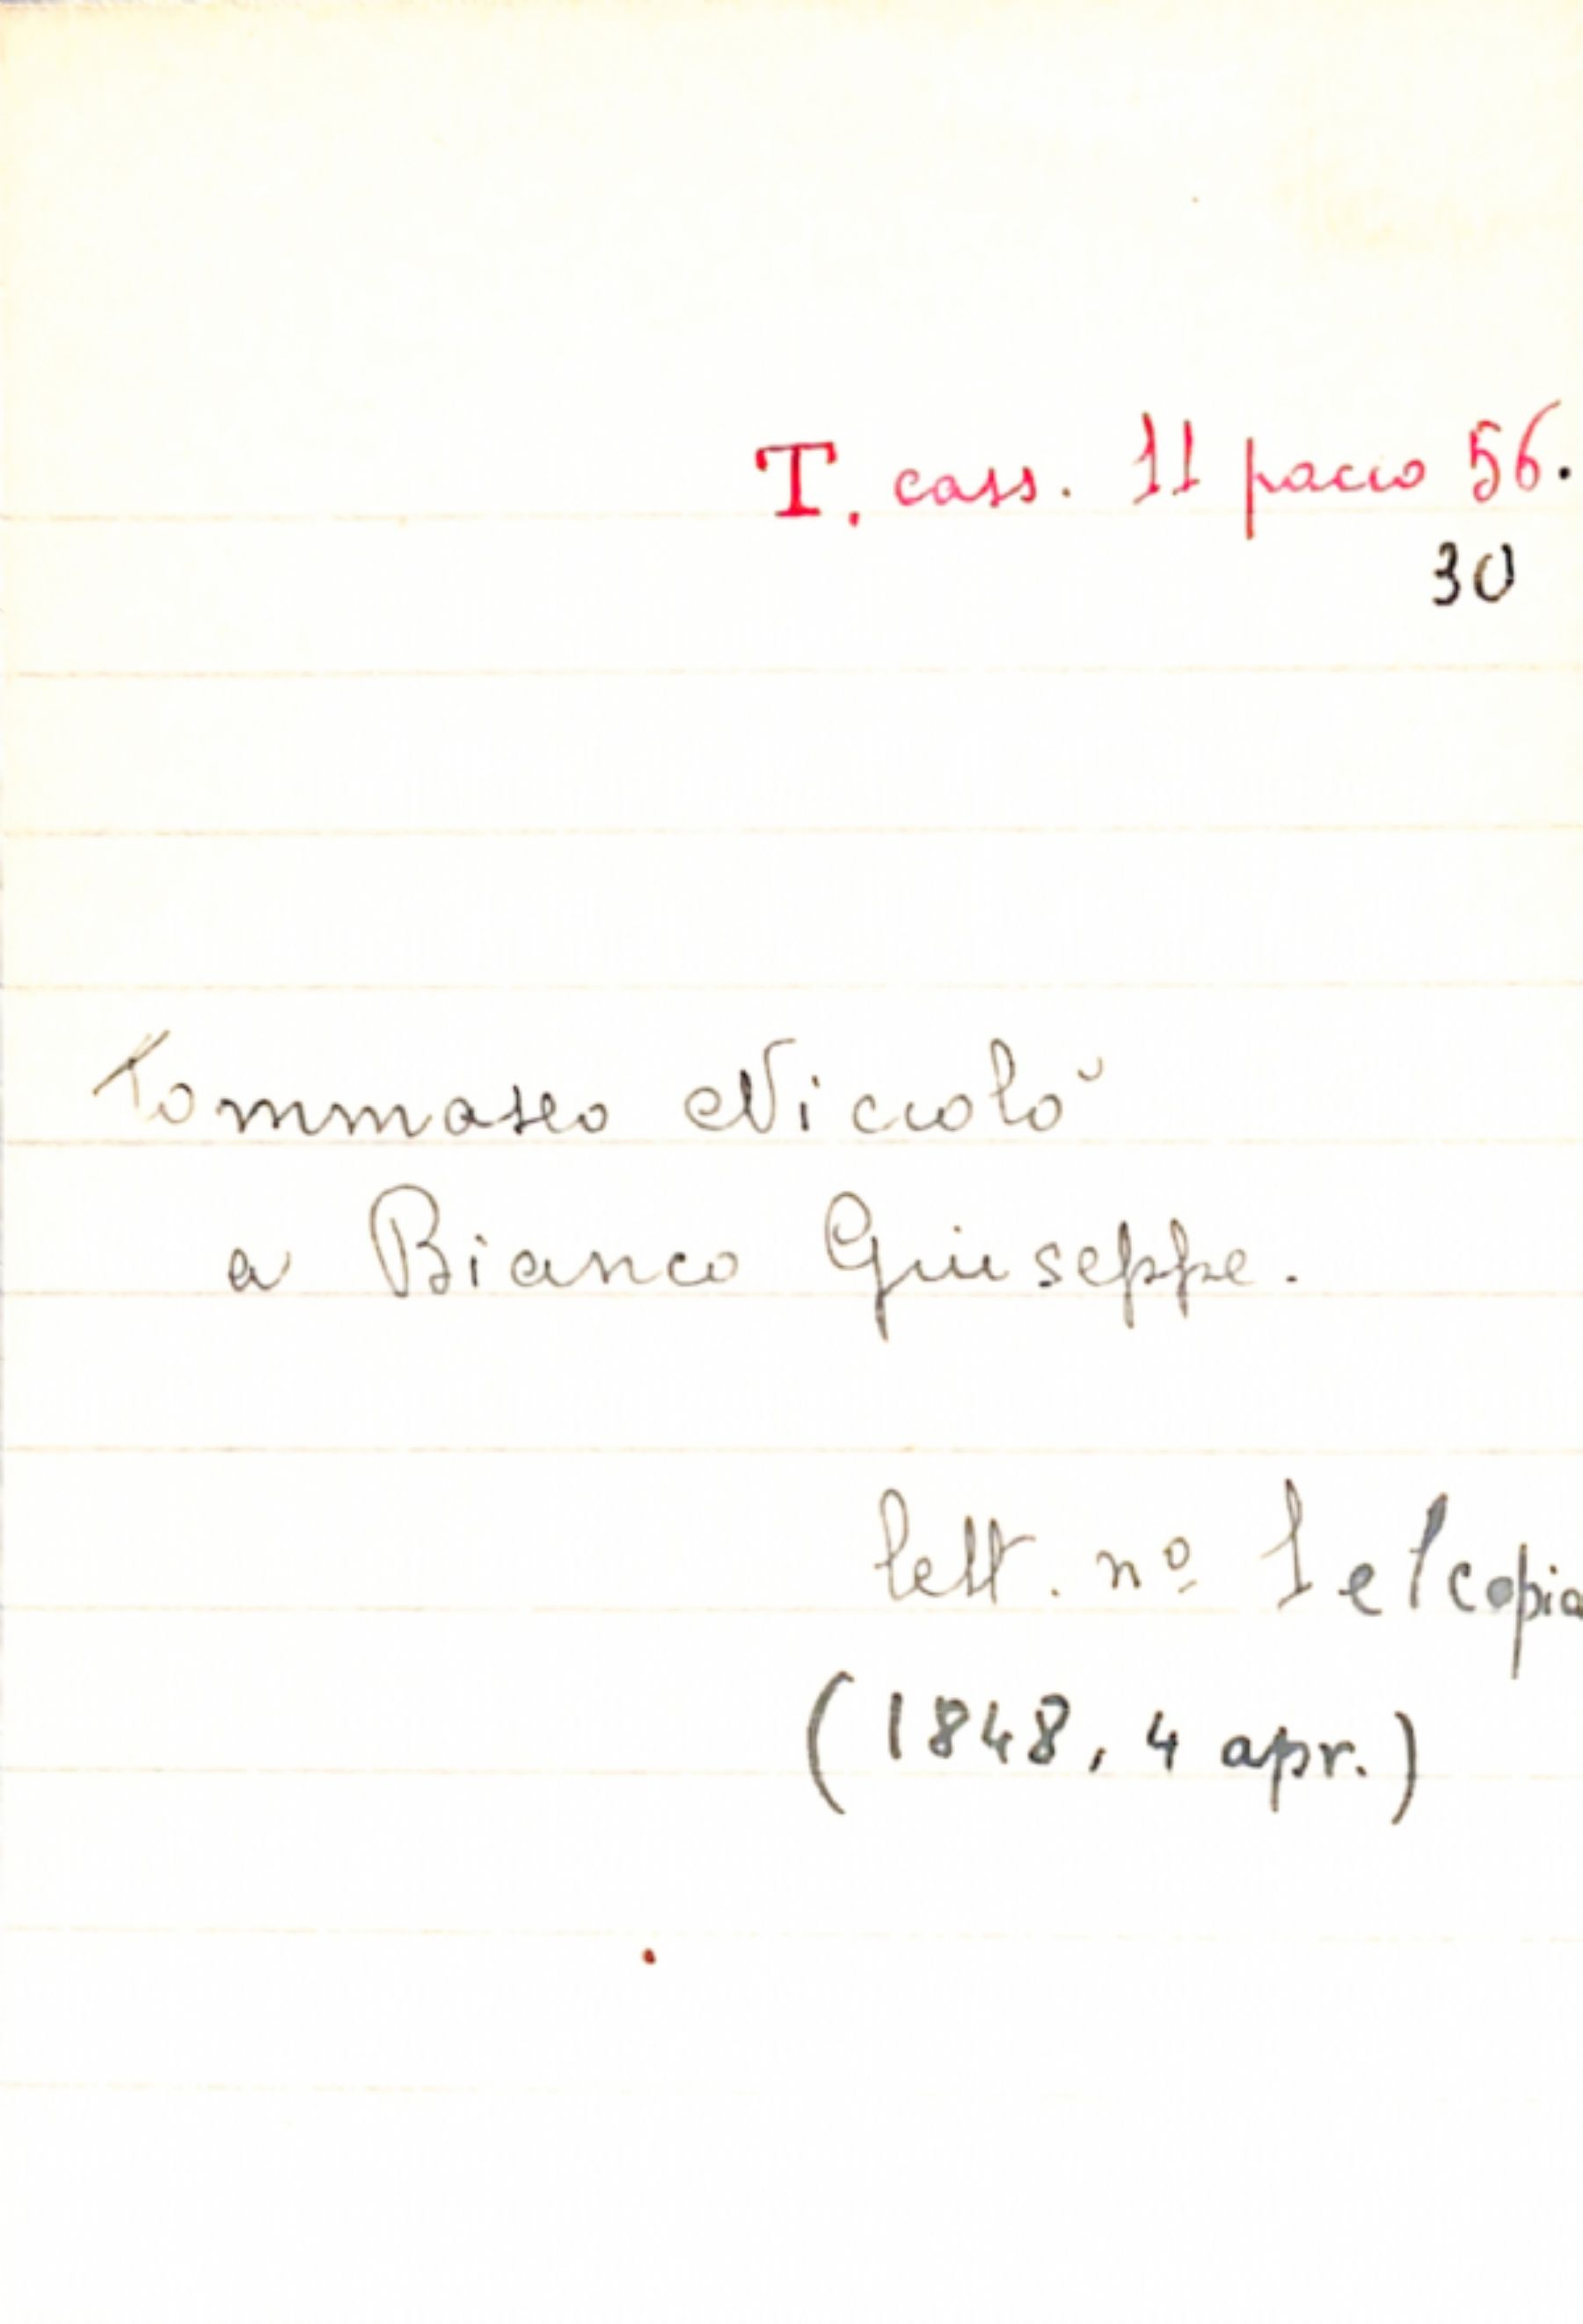 T. cass. 11 pacco 56.
30
Tommaseo Niccolò
a Bianco Giuseppe.
lett. nº 1 e 1 copia
(1848, 4 apr.)